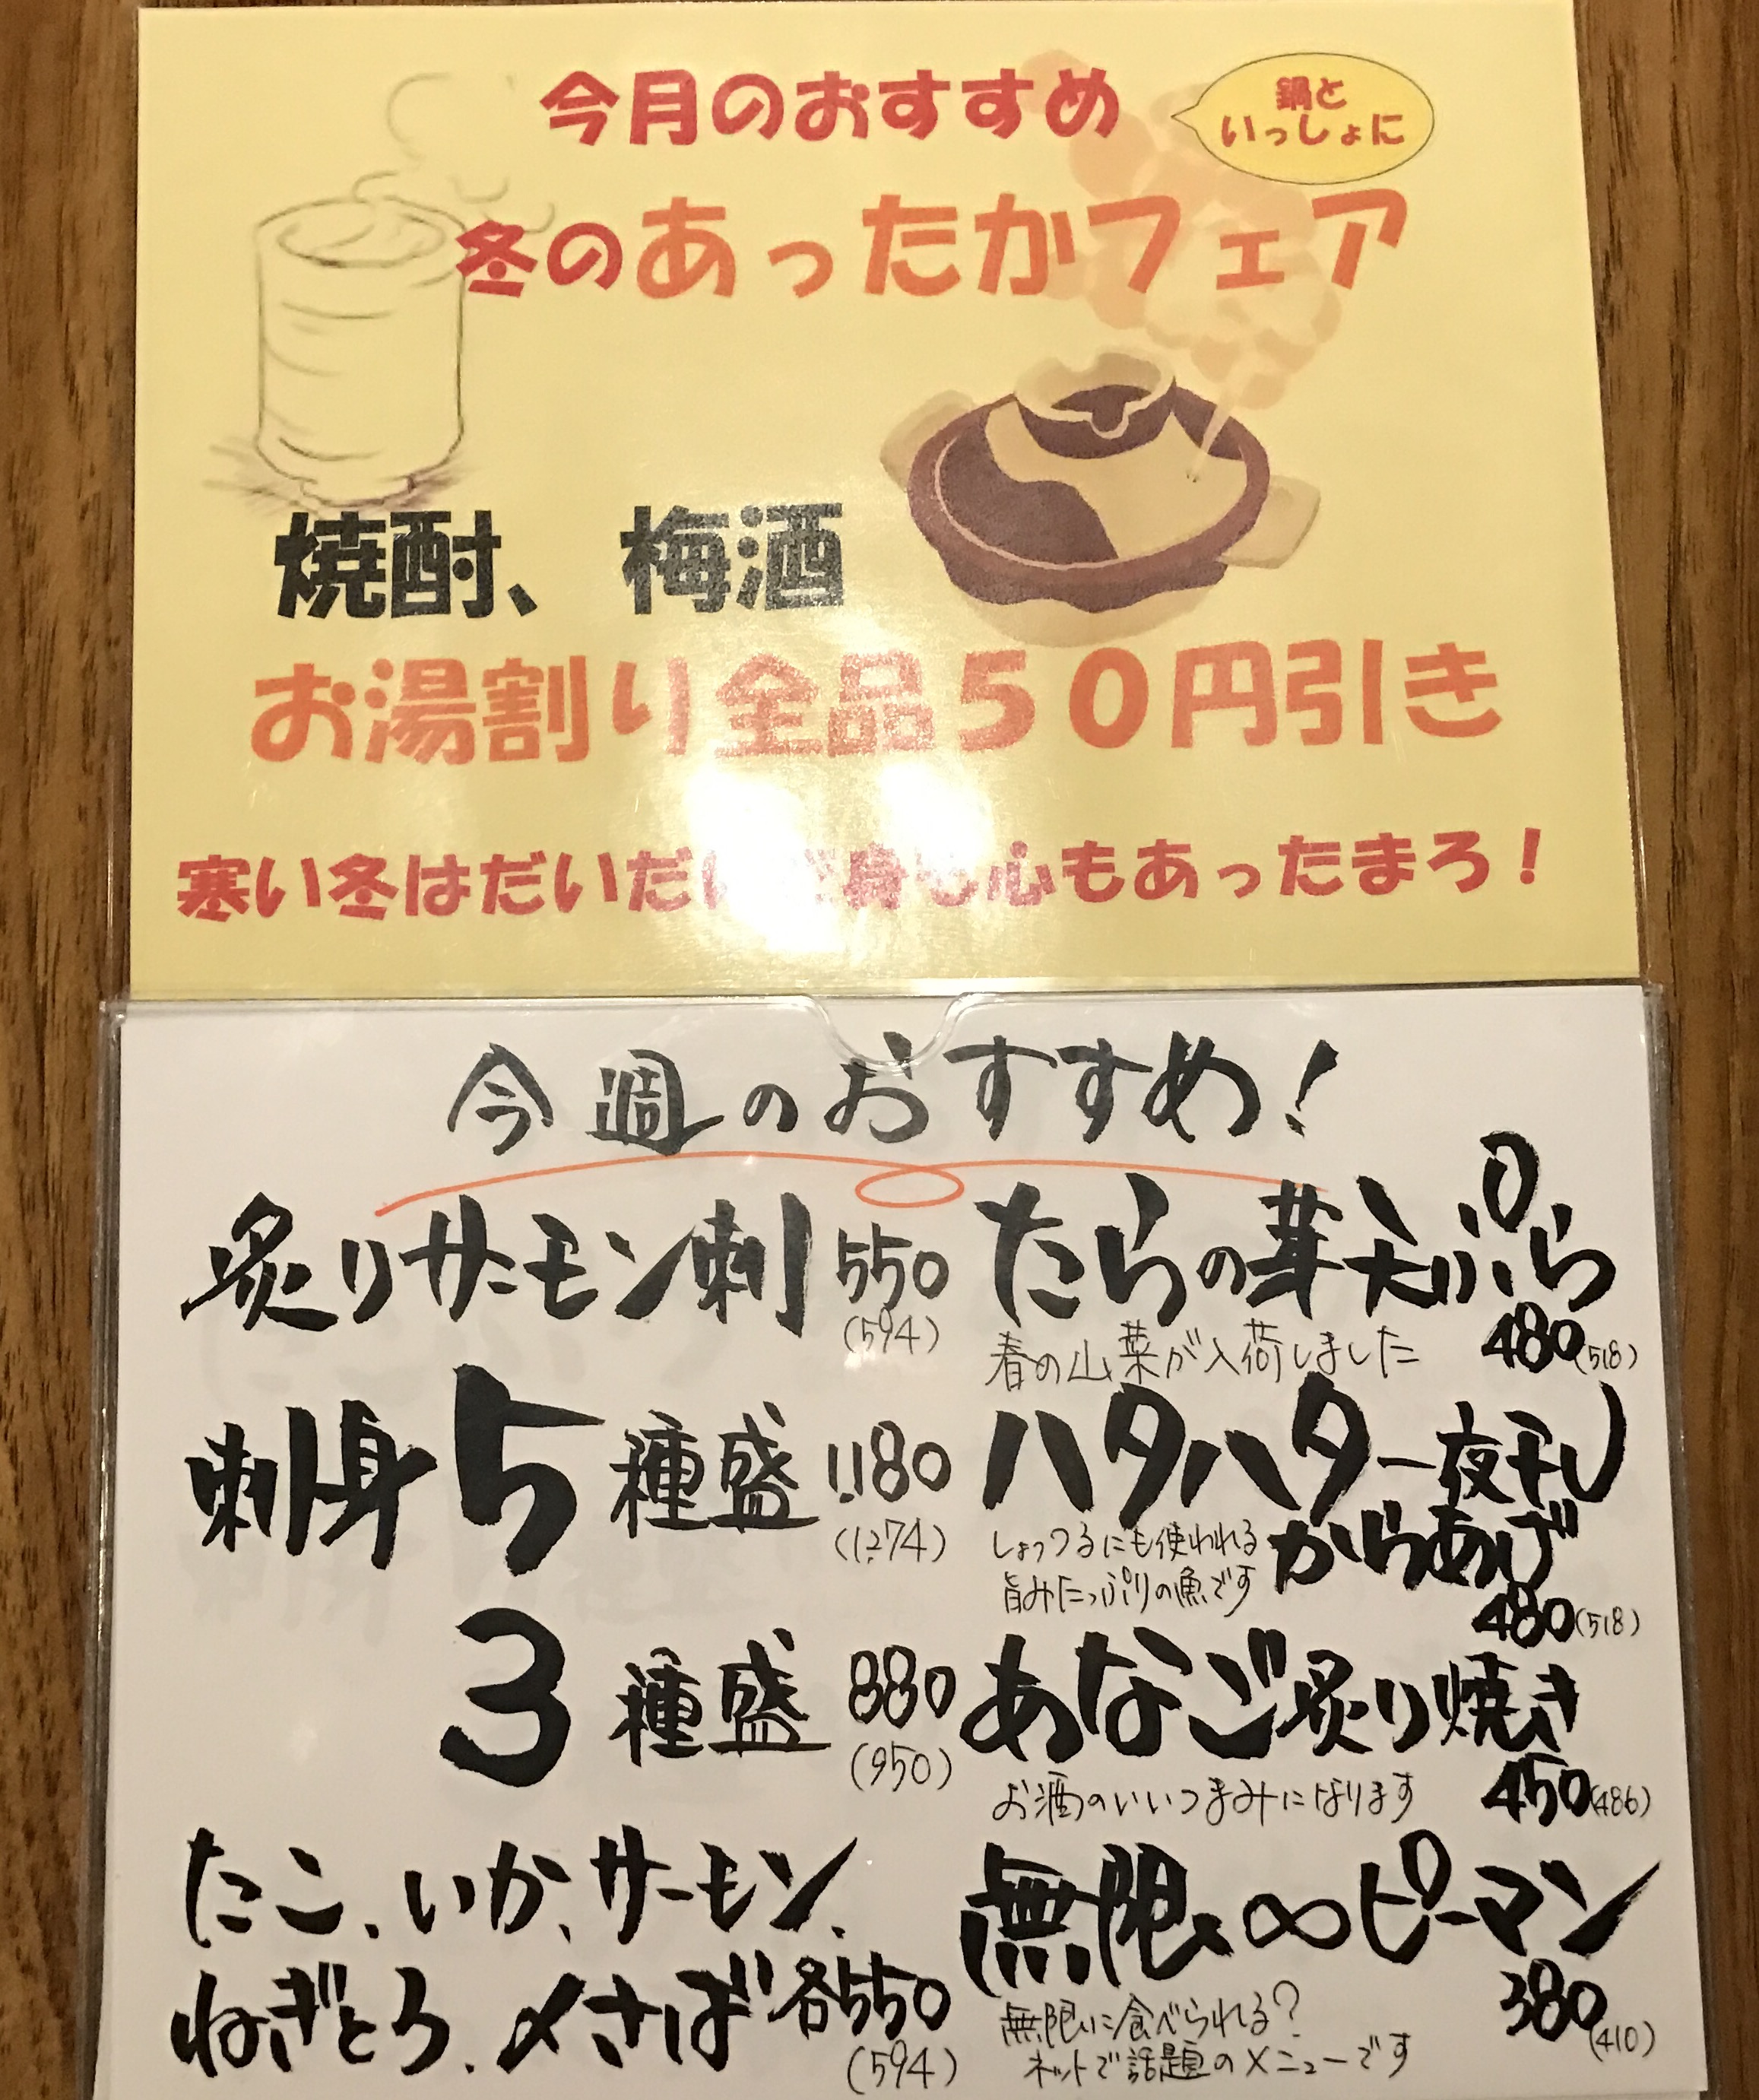 今月のおすすめ
鍋と
いっしょに
冬のあったかフェア
焼酎、梅酒
お湯割り全品50円引き
寒い冬はだいだい 身も心もあったまろ！
今週のおすすめ!
炙りサーモン刺 550
(594)
刺身5種盛 1,180
(1,274)
3種盛 880
(950)
たこ、いか、サーモン、
ねぎとろ、〆さば 各550
(594)
たらの芽天ぷら
春の山菜が入荷しました 480(518)
ハタハタ一夜干し
からあげ
しょっつるにも使われる
旨みたっぷりの魚です
480(518)
あなご炙り焼き
お酒のいいつまみになります 450(486)
無限∞ピーマン
380
(410)
無限に食べられる?
ネットで話題のメニューです